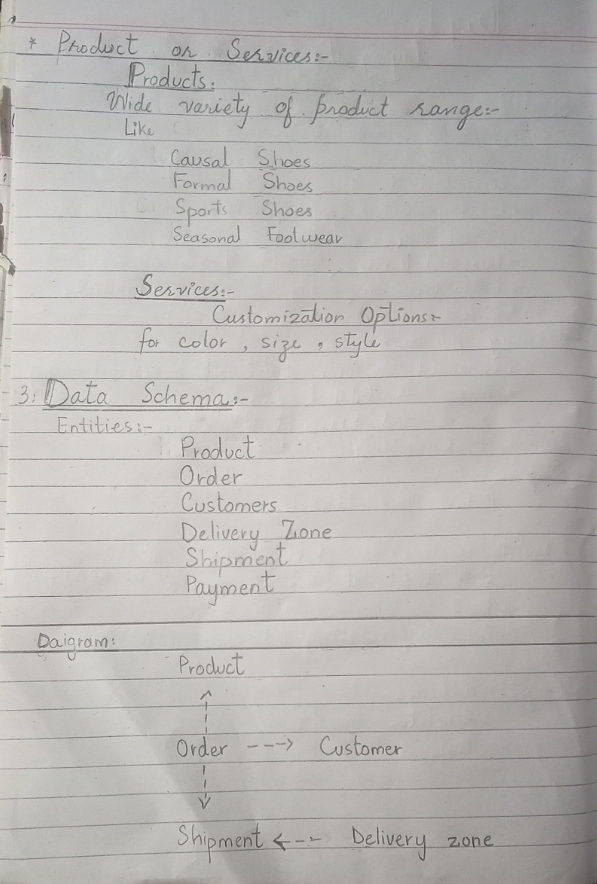 * Product or Services:-
Products:
Wide variety of product range:-
Like
Causal Shoes
Formal Shoes
Sports Shoes
Seasonal Footwear
Services:-
Customization Options:-
for color, size, style
3: Data Schema:-
Entities:-
Product
Order
Customers
Delivery Zone
Shipment
Payment
Daigram:
Product
Order ---> Customer
Shipment <-- Delivery zone